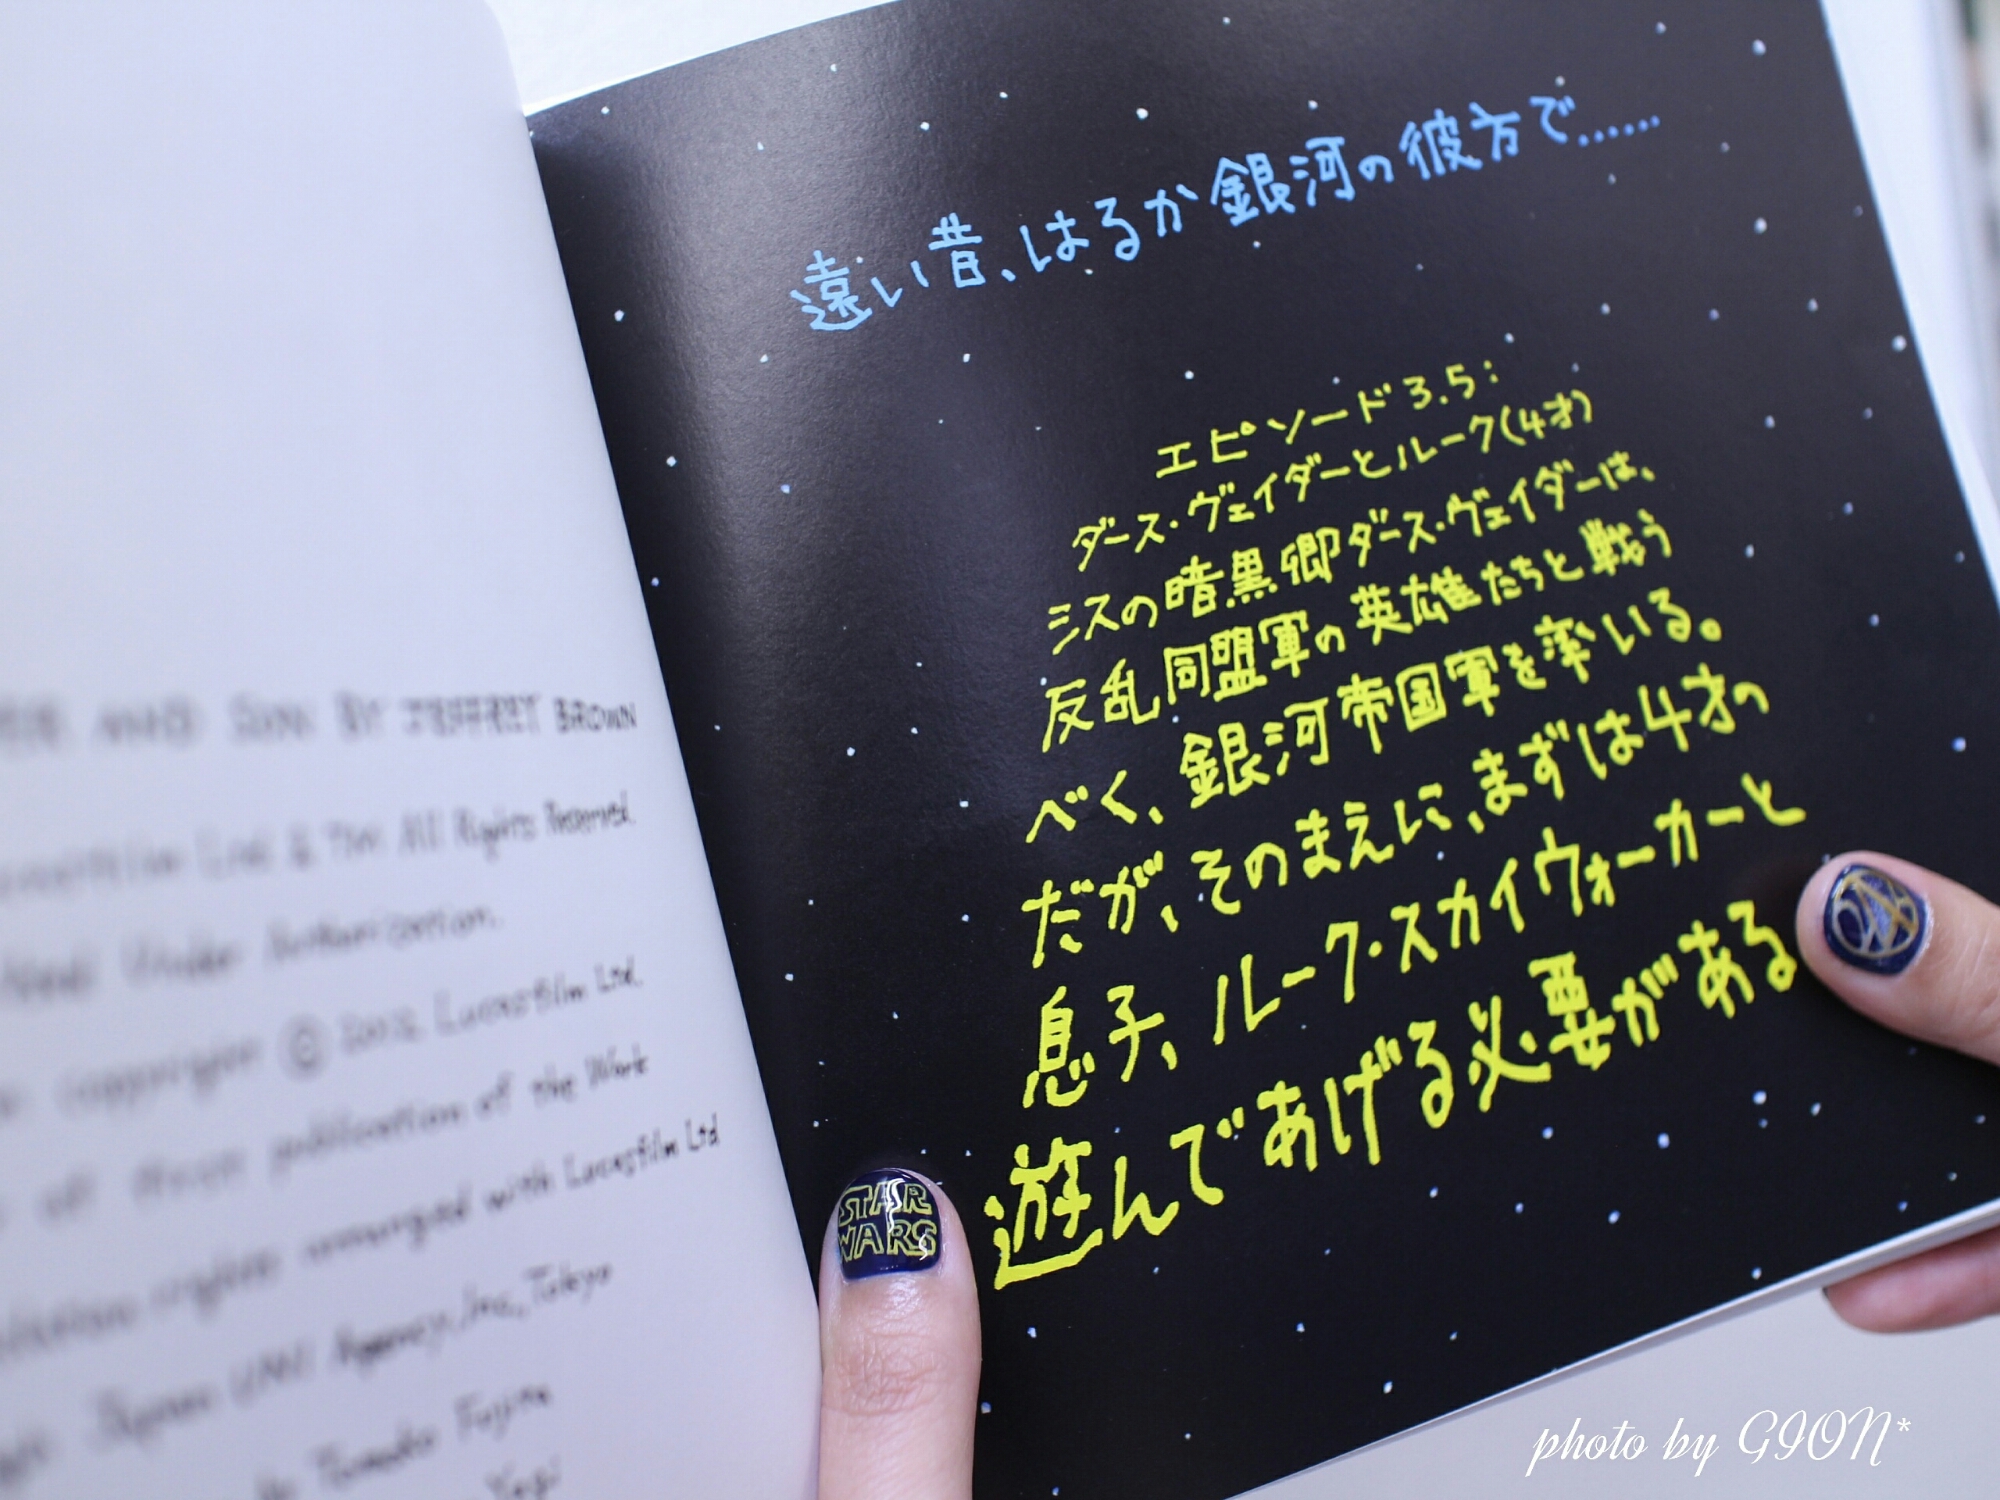 AND SON BY JEFFREY BROWN
Lucasfilm Ltd & TM All Rights Reserved.
Used Under Authorization.
copyright © 2012 Lucasfilm Ltd.
of first publication of the Work
arranged with Lucasfilm Ltd
Japan UNI Agency, Inc., Tokyo
Tomoko Fujita
遠い昔、はるか銀河の彼方で……
エピソード3.5:
ダース・ヴェイダーとルーク(4才)
シスの暗黒卿ダース・ヴェイダーは、
反乱同盟軍の英雄たちと戦う
べく、銀河帝国軍を率いる。
だが、そのまえに、まずは4才の
息子、ルーク・スカイウォーカーと
遊んであげる必要がある
STAR
WARS
photo by GION*